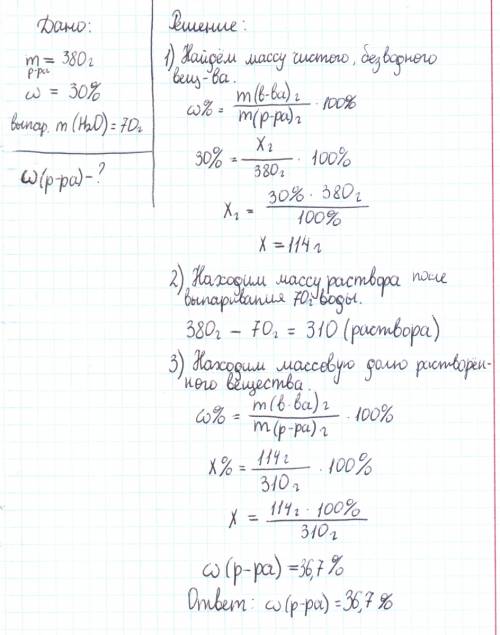 Дано:
m = 380г
р-ра
ω = 30%
выпар. m (H₂O) = 70г
ω(р-ра) - ?
Решение:
1) Найдём массу чистого, безводного
вещ-ва.
ω% = m(в-ва)г / m(р-ра)г · 100%
30% = Xг / 380г · 100%
Xг = 30% · 380г / 100%
X = 114г
2) Находим массу раствора после
выпаривания 70г воды.
380г - 70г = 310 (раствора)
3) Находим массовую долю растворён-
ного вещества.
ω% = m(в-ва)г / m(р-ра)г · 100%
X% = 114г / 310г · 100%
X = 114г · 100% / 310г
ω(р-ра) = 36,7%
Ответ: ω(р-ра) = 36,7%